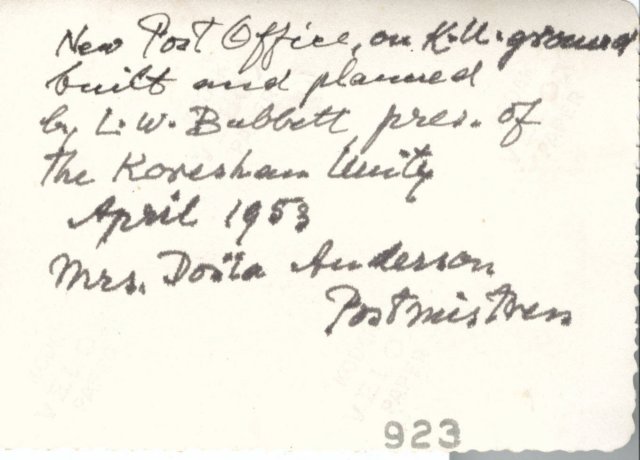 New Post Office, on K.U. ground
built and planned
by L. W. Bubbett, pres. of
the Koreshan Unity
April 1953
Mrs. Anderson
Postmistress
923